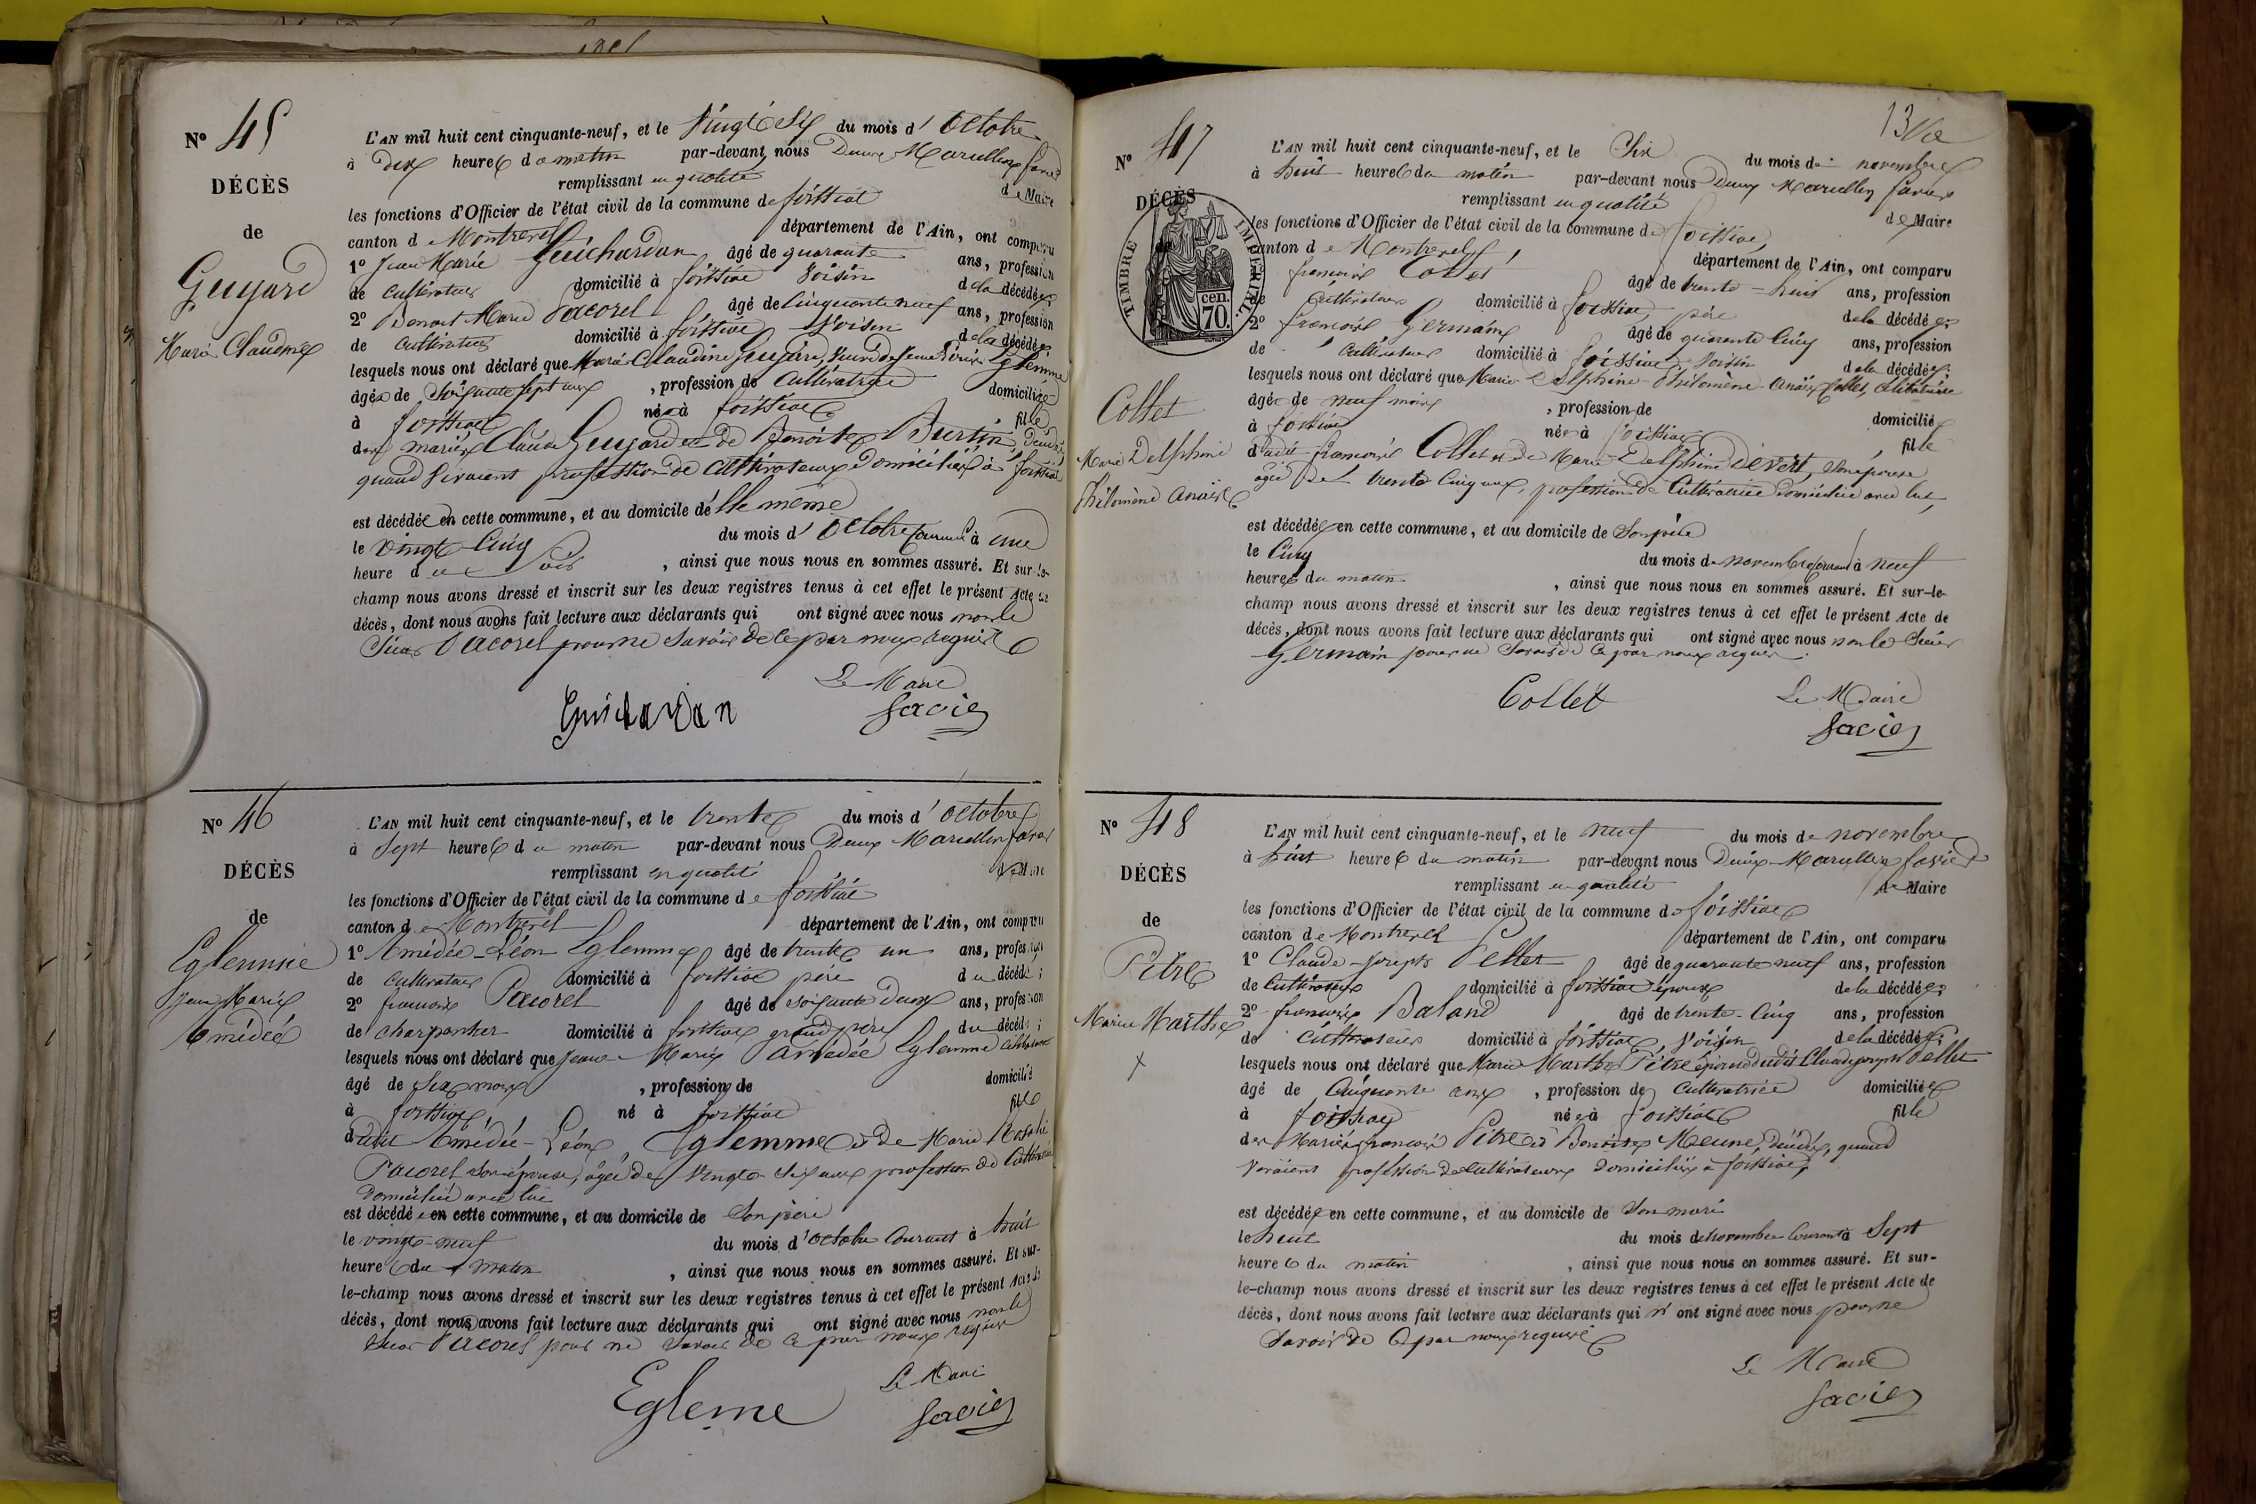 N° 45
DÉCÈS
de
Guyard
Marie Claudine
L'AN mil huit cent cinquante-neuf, et le Vingt Six du mois d'Octobre
à dix heures du matin par-devant nous
remplissant en qualité de Maire
les fonctions d'Officier de l'état civil de la commune de foissiat
canton de Montrevel département de l'Ain, ont comparu
1° Jean Marie Guichardan âgé de quarante ans, profession
de cultivateur domicilié à foissiat voisin de la décédée;
2° Benoit Marie Pacorel âgé de cinquante neuf ans, profession
de cultivateur domicilié à foissiat Voisin de la décédée
lesquels nous ont déclaré que Marie Claudine Guyard, Veuve de
âgée de Soixante sept ans, profession de cultivatrice domiciliée
à foissiat née à foissiat fille
des mariés Claude Guyard et de Benoite Burtin,
quand vivaient profession de cultivateurs domiciliés à foissiat
est décédée en cette commune, et au domicile d'elle même
le vingt cinq du mois d'Octobre courant à une
heure du Soir, ainsi que nous nous en sommes assuré. Et sur-le-
champ nous avons dressé et inscrit sur les deux registres tenus à cet effet le présent Acte de
décès, dont nous avons fait lecture aux déclarants qui ont signé avec nous non le
Sieur Pacorel pour ne Savoir de ce par nous requis
Le Maire
Guichardan favier
N° 46
DÉCÈS
de
Eglemme
Jean Marie
Amédée
L'AN mil huit cent cinquante-neuf, et le trente du mois d'Octobre
à Sept heures du matin par-devant nous
remplissant en qualité de Maire
les fonctions d'Officier de l'état civil de la commune de foissiat
canton de Montrevel département de l'Ain, ont comparu
1° Amédée Léon Eglemme âgé de trente un ans, profession
de cultivateur domicilié à foissiat père du décédé;
2° françois Pacorel âgé de soixante Deux ans, profession
de charpentier domicilié à foissiat grand père du décédé;
lesquels nous ont déclaré que Jean Marie Amédée Eglemme célibataire
âgé de Six mois, profession de domicilié
à foissiat né à foissiat fils
dudit Amédée Léon Eglemme et de Marie Rosalie
Pacorel Son épouse, âgée de Vingt Six ans profession de Cultivatrice
Domiciliée avec lui
est décédé en cette commune, et au domicile de Son père
le vingt neuf du mois d'octobre Courant à huit
heures du matin, ainsi que nous nous en sommes assuré. Et sur-
le-champ nous avons dressé et inscrit sur les deux registres tenus à cet effet le présent Acte de
décès, dont nous avons fait lecture aux déclarants qui ont signé avec nous non le
Sieur Pacorel pour ne Savoir de ce par nous requis
Le Maire
Egleme favier
13
N° 47
DÉCÈS
TIMBRE IMPÉRIAL
cen. 70.
de
Collet
Marie Delphine
Philomène Anaïse
L'AN mil huit cent cinquante-neuf, et le Six du mois de novembre
à huit heures du matin par-devant nous
remplissant en qualité de Maire
les fonctions d'Officier de l'état civil de la commune de foissiat
canton de Montrevel département de l'Ain, ont comparu
françois Collet âgé de trente-huit ans, profession
de Cultivateur domicilié à foissiat père de la décédée;
2° françois Germain âgé de quarante Cinq ans, profession
de Cultivateur domicilié à foissiat Voisin de la décédée;
lesquels nous ont déclaré que Marie Delphine Philomène Anaïse Collet célibataire
âgée de neuf mois, profession de domiciliée
à foissiat née à foissiat, fille
dudit françois Collet et de Marie Delphine Devert, Son épouse
âgée de trente Cinq ans, profession de Cultivatrice domiciliée avec lui,
est décédée en cette commune, et au domicile de Son père
le Cinq du mois de novembre courant à neuf
heures du matin, ainsi que nous nous en sommes assuré. Et sur-le-
champ nous avons dressé et inscrit sur les deux registres tenus à cet effet le présent Acte de
décès, dont nous avons fait lecture aux déclarants qui ont signé avec nous non le Sieur
Germain pour ne Savoir de ce par nous requis.
Collet Le Maire
favier
N° 48
DÉCÈS
de
Pitre
Marie Marthe
L'AN mil huit cent cinquante-neuf, et le neuf du mois de novembre
à huit heures du matin par-devant nous
remplissant en qualité de Maire
les fonctions d'Officier de l'état civil de la commune de foissiat
canton de Montrevel département de l'Ain, ont comparu
1° Claude Joseph Pellet âgé de quarante neuf ans, profession
de Cultivateur domicilié à foissiat époux de la décédée;
2° françois Baland âgé de trente-Cinq ans, profession
de Cultivateur domicilié à foissiat, Voisin de la décédée;
lesquels nous ont déclaré que Marie Marthe Pitre épouse dudit Claude joseph Pellet
âgé de Cinquante ans, profession de Cultivatrice domiciliée
à foissiat née à foissiat fille
des Mariés françois Pitre et Benoite Meunie, Décédés, quand
Vivaient profession de cultivateurs domiciliés à foissiat,
est décédée en cette commune, et au domicile de Son mari
le huit du mois de novembre Courant à Sept
heures du matin, ainsi que nous nous en sommes assuré. Et sur-
le-champ nous avons dressé et inscrit sur les deux registres tenus à cet effet le présent Acte de
décès, dont nous avons fait lecture aux déclarants qui n'ont signé avec nous pour ne
Savoir de ce par nous requis
Le Maire
favier